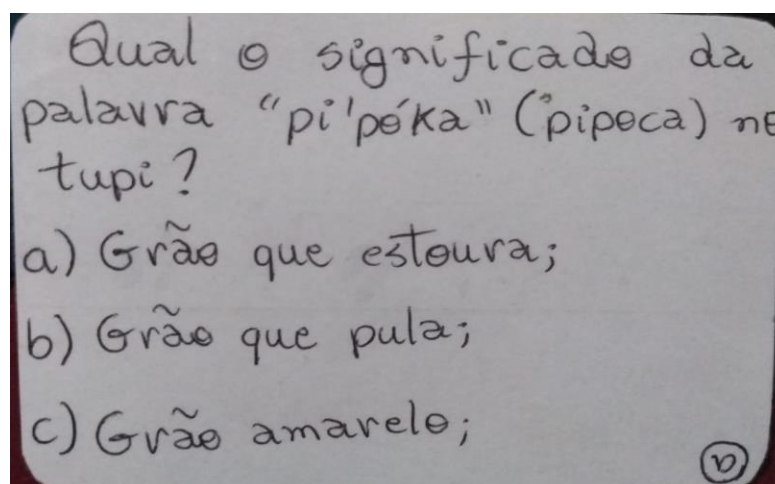 Qual o significado da
palavra "pi'póka" (pipoca) no
tupi?
a) Grão que estoura;
b) Grão que pula;
c) Grão amarelo;